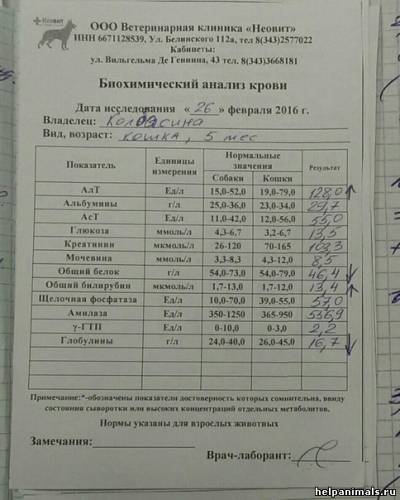 Неовит
ООО Ветеринарная клиника «Неовит»
ИНН 6671128539, Ул. Белинского 112а, тел 8(343)2577022
Кабинеты:
ул. Вильгельма Де Геннина, 43 тел. 8(343)3668181
Биохимический анализ крови
Дата исследования « 26 » февраля 2016 г.
Владелец:
Вид, возраст: кошка, 5 мес
Показатель Единицы измерения Нормальные значения Собаки Кошки Результат
АлТ Ед/л 15,0-52,0 19,0-79,0 128,0 ↑
Альбумины г/л 25,0-36,0 23,0-34,0 29,7
АсТ Ед/л 11,0-42,0 12,0-56,0 55,0
Глюкоза ммоль/л 4,3-6,7 3,2-6,7 13,5
Креатинин мкмоль/л 26-120 70-165 103,3
Мочевина ммоль/л 3,3-8,3 4,3-12,0 8,5
Общий белок г/л 54,0-73,0 54,0-79,0 46,4 ↓
Общий билирубин мкмоль/л 1,7-13,0 1,7-12,0 13,4 ↑
Щелочная фосфатаза Ед/л 10,0-70,0 39,0-55,0 57,0
Амилаза Ед/л 350-1250 365-950 536,9
γ-ГТП Ед/л 0-10,0 0-3,0 2,2
Глобулины г/л 24,0-40,0 26,0-45,0 16,7 ↓
Примечание:*-обозначены показатели достоверность которых сомнительна, ввиду
состояния сыворотки или высоких концентраций отдельных метаболитов.
Нормы указаны для взрослых животных
Замечания:
Врач-лаборант:
helpanimals.ru